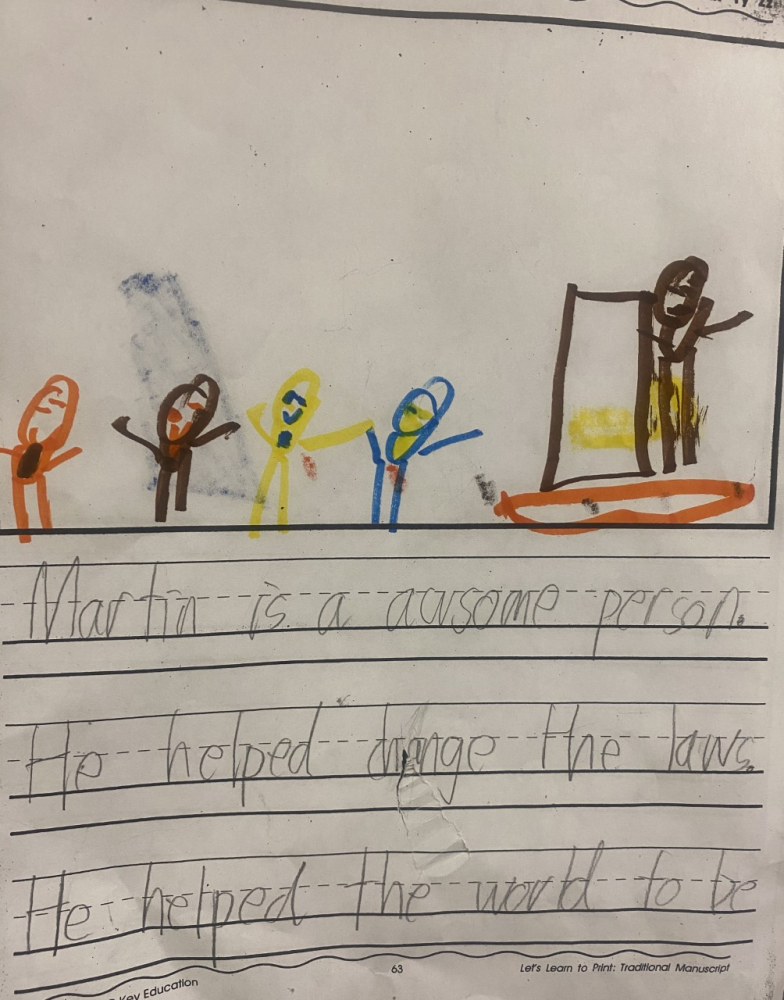 Martin is a awsome person.
He helped change the laws.
He helped the world to be
63
Let's Learn to Print: Traditional Manuscript
Key Education